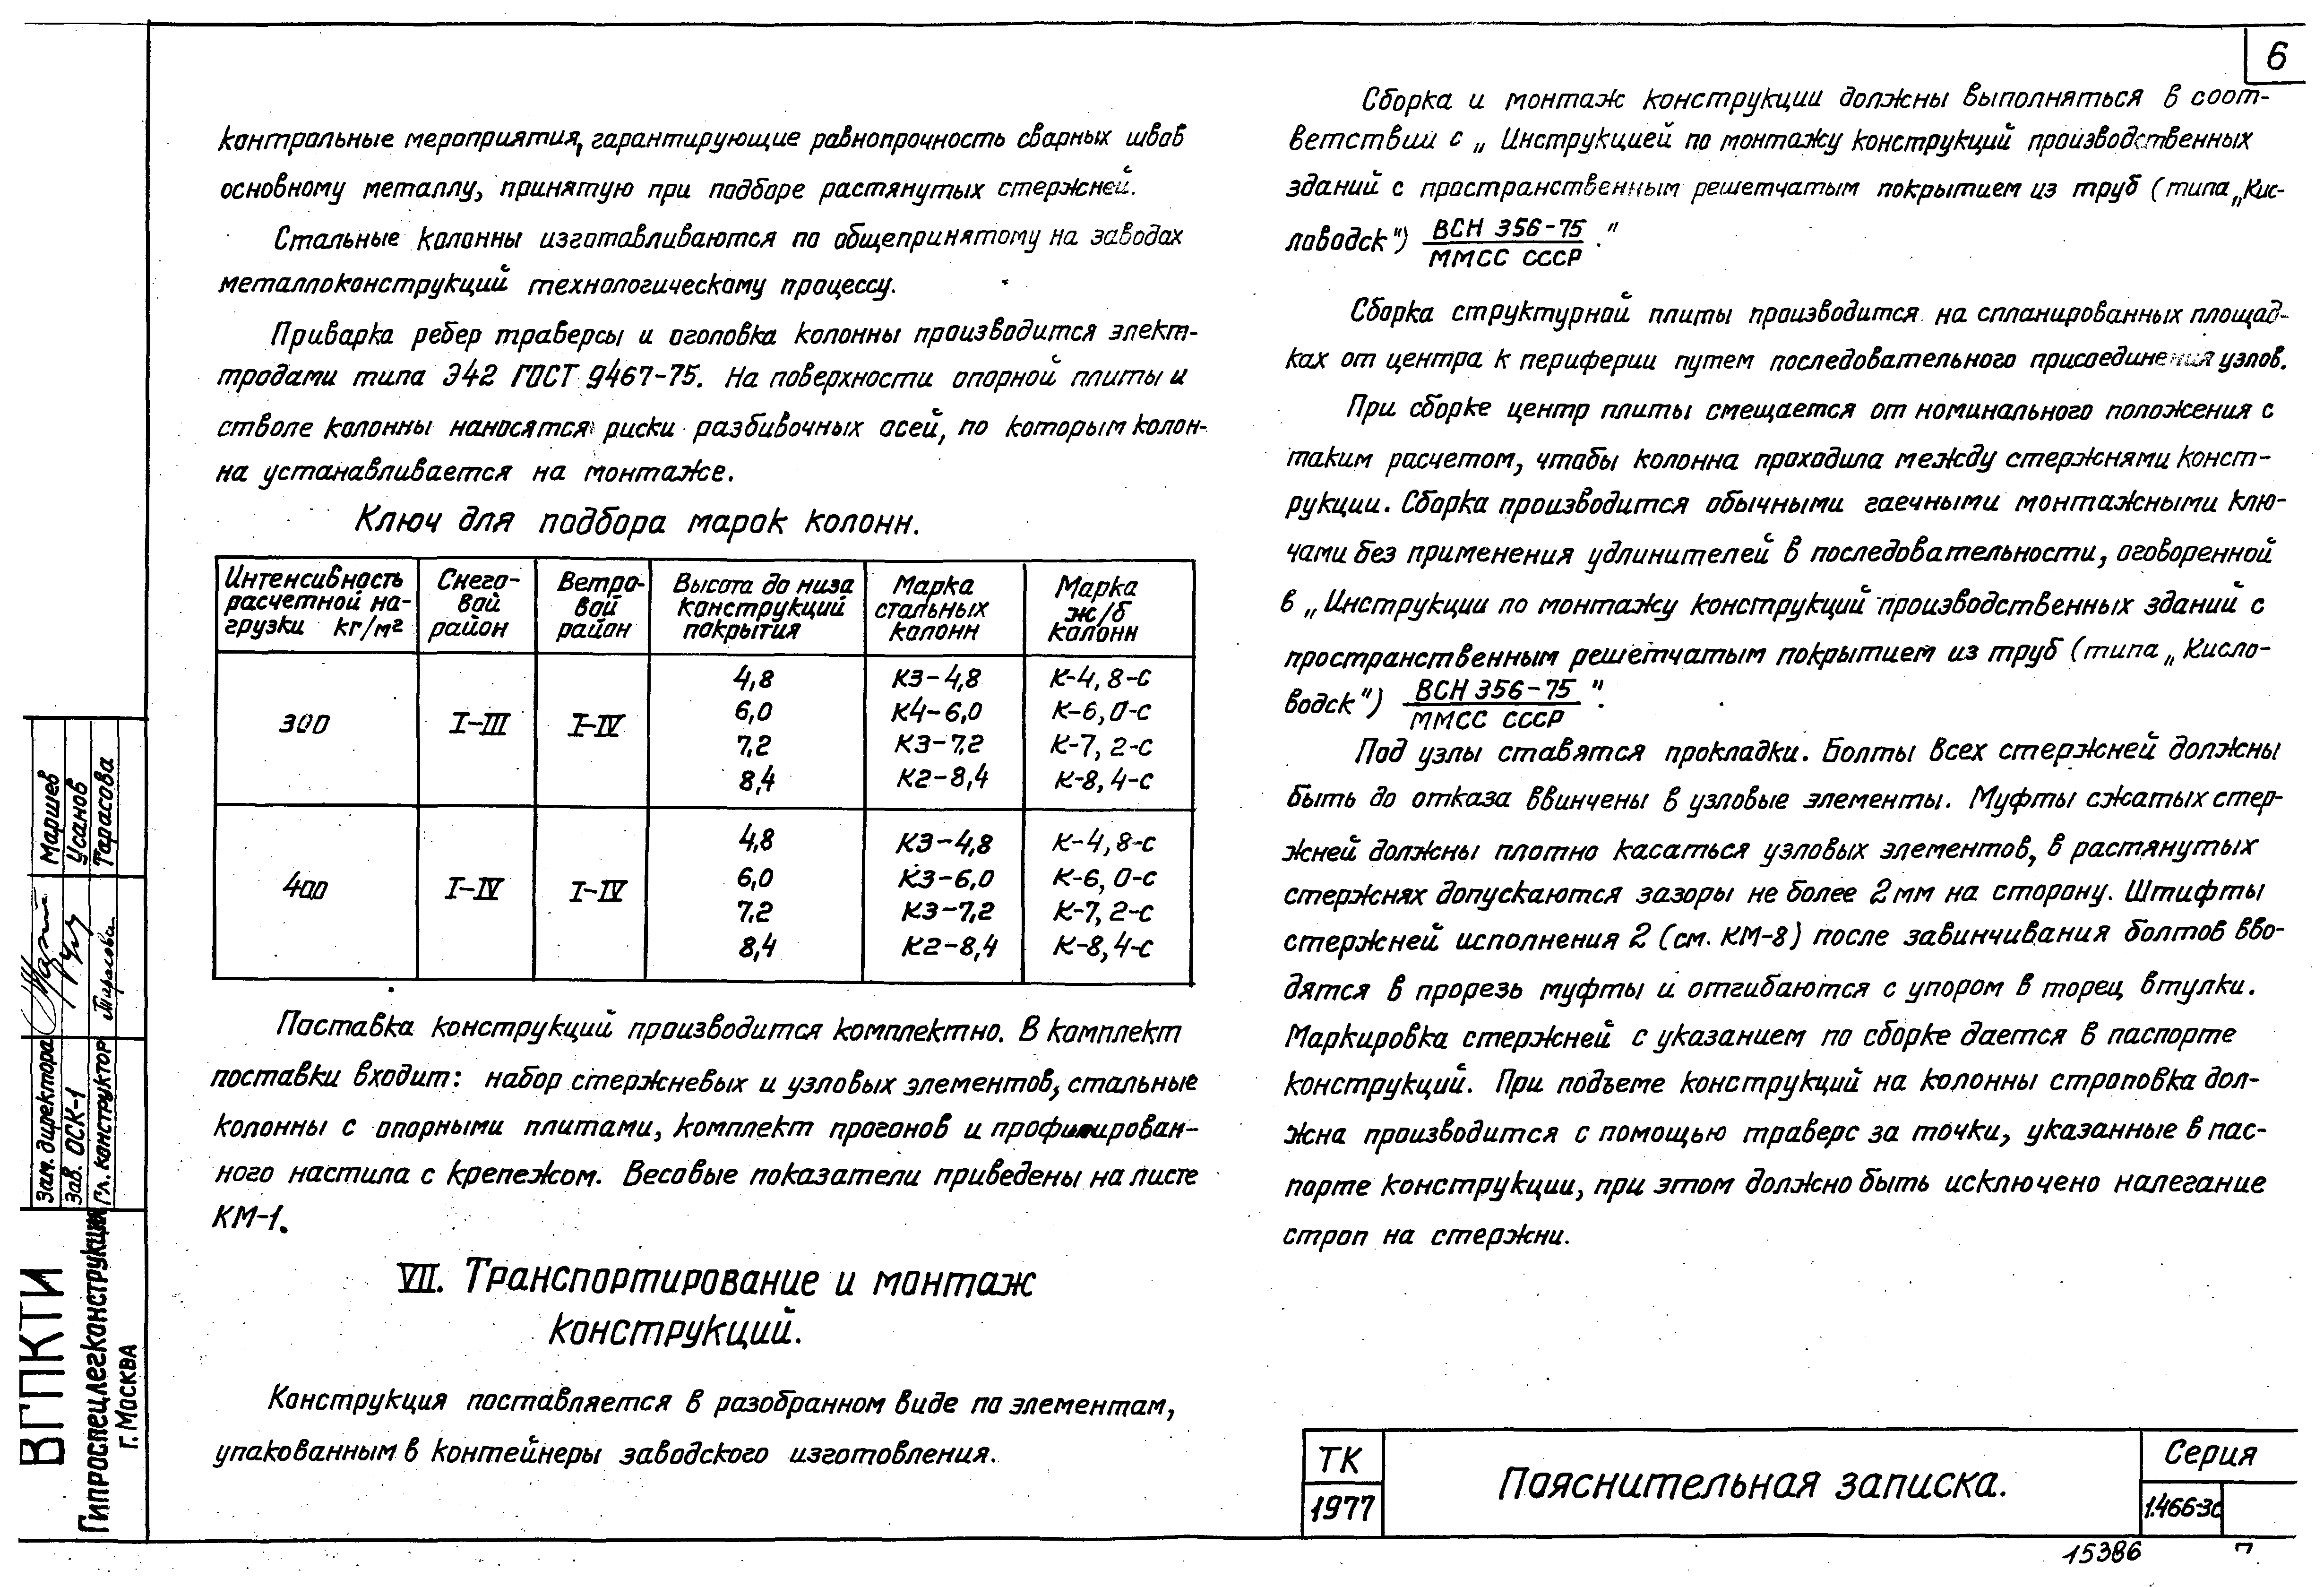 6
контрольные мероприятия, гарантирующие равнопрочность сварных швов
основному металлу, принятую при подборе растянутых стержней.
Стальные колонны изготавливаются по общепринятому на заводах
металлоконструкций технологическому процессу.
Приварка ребер траверсы и оголовка колонны производится элект-
тродами типа Э42 ГОСТ 9467-75. На поверхности опорной плиты и
стволе колонны наносятся риски разбивочных осей, по которым колон-
на устанавливается на монтаже.
Ключ для подбора марок колонн.
Интенсивность расчетной на-грузки кг/м2 | Снего-вой район | Ветро-вой район | Высота до низа конструкций покрытия | Марка стальных колонн | Марка ж/б колонн
300 | I-III | I-IV | 4,8 | К3-4,8 | К-4,8-с
6,0 | К4-6,0 | К-6,0-с
7,2 | К3-7,2 | К-7,2-с
8,4 | К2-8,4 | К-8,4-с
400 | I-IV | I-IV | 4,8 | К3-4,8 | К-4,8-с
6,0 | К3-6,0 | К-6,0-с
7,2 | К3-7,2 | К-7,2-с
8,4 | К2-8,4 | К-8,4-с
Поставка конструкций производится комплектно. В комплект
поставки входит: набор стержневых и узловых элементов, стальные
колонны с опорными плитами, комплект прогонов и профилирован-
ного настила с крепежом. Весовые показатели приведены на листе
КМ-1.
VII. Транспортирование и монтаж
конструкций.
Конструкция поставляется в разобранном виде по элементам,
упакованным в контейнеры заводского изготовления.
Сборка и монтаж конструкции должны выполняться в соот-
ветствии с „Инструкцией по монтажу конструкций производственных
зданий с пространственным решетчатым покрытием из труб (типа „Кис-
ловодск") ВСН 356-75 / ММСС СССР."
Сборка структурной плиты производится на спланированных площад-
ках от центра к периферии путем последовательного присоединения узлов.
При сборке центр плиты смещается от номинального положения с
таким расчетом, чтобы колонна проходила между стержнями конст-
рукции. Сборка производится обычными гаечными монтажными клю-
чами без применения удлинителей в последовательности, оговоренной
в „Инструкции по монтажу конструкций производственных зданий с
пространственным решетчатым покрытием из труб (типа „Кисло-
водск") ВСН 356-75 / ММСС СССР".
Под узлы ставятся прокладки. Болты всех стержней должны
быть до отказа ввинчены в узловые элементы. Муфты сжатых стер-
жней должны плотно касаться узловых элементов, в растянутых
стержнях допускаются зазоры не более 2мм на сторону. Штифты
стержней исполнения 2 (см. КМ-8) после завинчивания болтов вво-
дятся в прорезь муфты и отгибаются с упором в торец втулки.
Маркировка стержней с указанием по сборке дается в паспорте
конструкций. При подъеме конструкций на колонны строповка дол-
жна производится с помощью траверс за точки, указанные в пас-
порте конструкции, при этом должно быть исключено налегание
строп на стержни.
ВГПКТИ
Гипроспецлегконструкция
г. Москва
Зам. директора | Маришев
Зав. ОСК-1 | Усанов
Гл. конструктор | Тарасова | Тарасова
ТК
1977
Пояснительная записка.
Серия
1.466-3с
15386 7